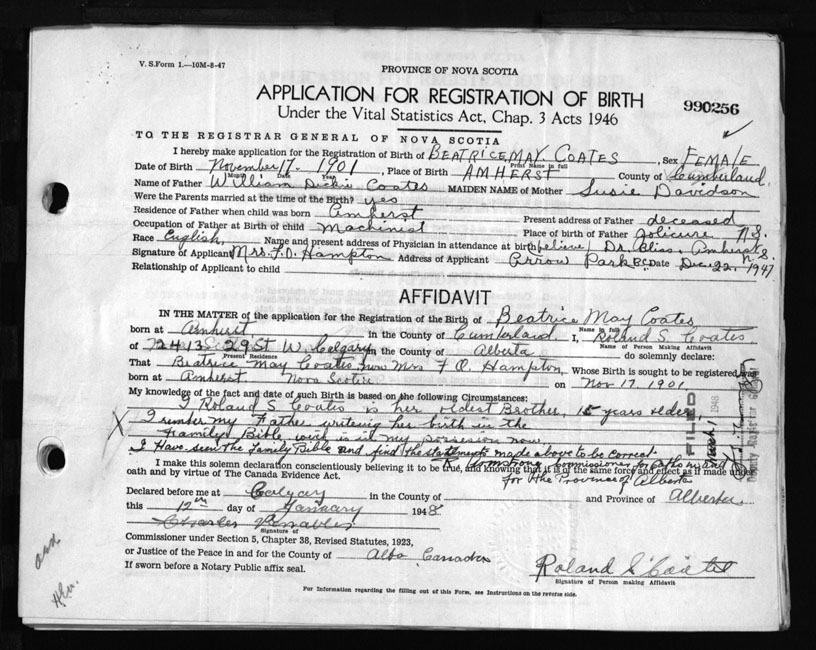 V. S. Form 1.—10M-8-47
PROVINCE OF NOVA SCOTIA
APPLICATION FOR REGISTRATION OF BIRTH
990256
Under the Vital Statistics Act, Chap. 3 Acts 1946
TO THE REGISTRAR GENERAL OF NOVA SCOTIA
I hereby make application for the Registration of Birth of BEATRICE MAY COATES, Sex FEMALE
Print Name in full
Date of Birth November 17. 1901, Place of Birth AMHERST County of Cumberland.
Month Date Year
Name of Father William Dickie Coates MAIDEN NAME of Mother Susie Davidson
Were the Parents married at the time of the Birth? yes
Residence of Father when child was born Amherst Present address of Father deceased
Occupation of Father at Birth of child Machinist Place of birth of Father Jolicure N.S.
Race English, Name and present address of Physician in attendance at birth (believe) Dr. Bliss, Amherst N.S.
Signature of Applicant Mrs. F. O. Hampton Address of Applicant Arrow Park B.C. Date Dec. 22, 1947
Relationship of Applicant to child
AFFIDAVIT
IN THE MATTER of the application for the Registration of the Birth of Beatrice May Coates
Name in full
born at Amherst in the County of Cumberland I, Roland S Coates
Name of Person Making Affidavit
of 2413 29 St W. Calgary in the County of Alberta do solemnly declare:
Present Residence
That Beatrice May Coates, now Mrs F O. Hampton, Whose Birth is sought to be registered, was
born at Amherst Nova Scotia on Nov 17. 1901
My knowledge of the fact and date of such Birth is based on the following Circumstances:
I Roland S Coates is her oldest Brother, 15 years older
X I rember my Father writeing her birth in the
Familys Bible wich is in my possesion now.
I Have seen the Family Bible and find the statements made above to be correct.
Commissioner for Oaths in and
I make this solemn declaration conscientiously believing it to be true, and knowing that it is of the same force and effect as if made under
for the Province of Alberta
oath and by virtue of The Canada Evidence Act.
Declared before me at Calgary in the County of and Province of Alberta
this 12th day of January 1948
Charles Venables
Signature of
Commissioner under Section 5, Chapter 38, Revised Statutes, 1923,
or Justice of the Peace in and for the County of Alta Canada
If sworn before a Notary Public affix seal.
Roland S Coates
Signature of Person making Affidavit
For Information regarding the filling out of this Form, see Instructions on the reverse side.
FILED
1948
Deputy Registrar General